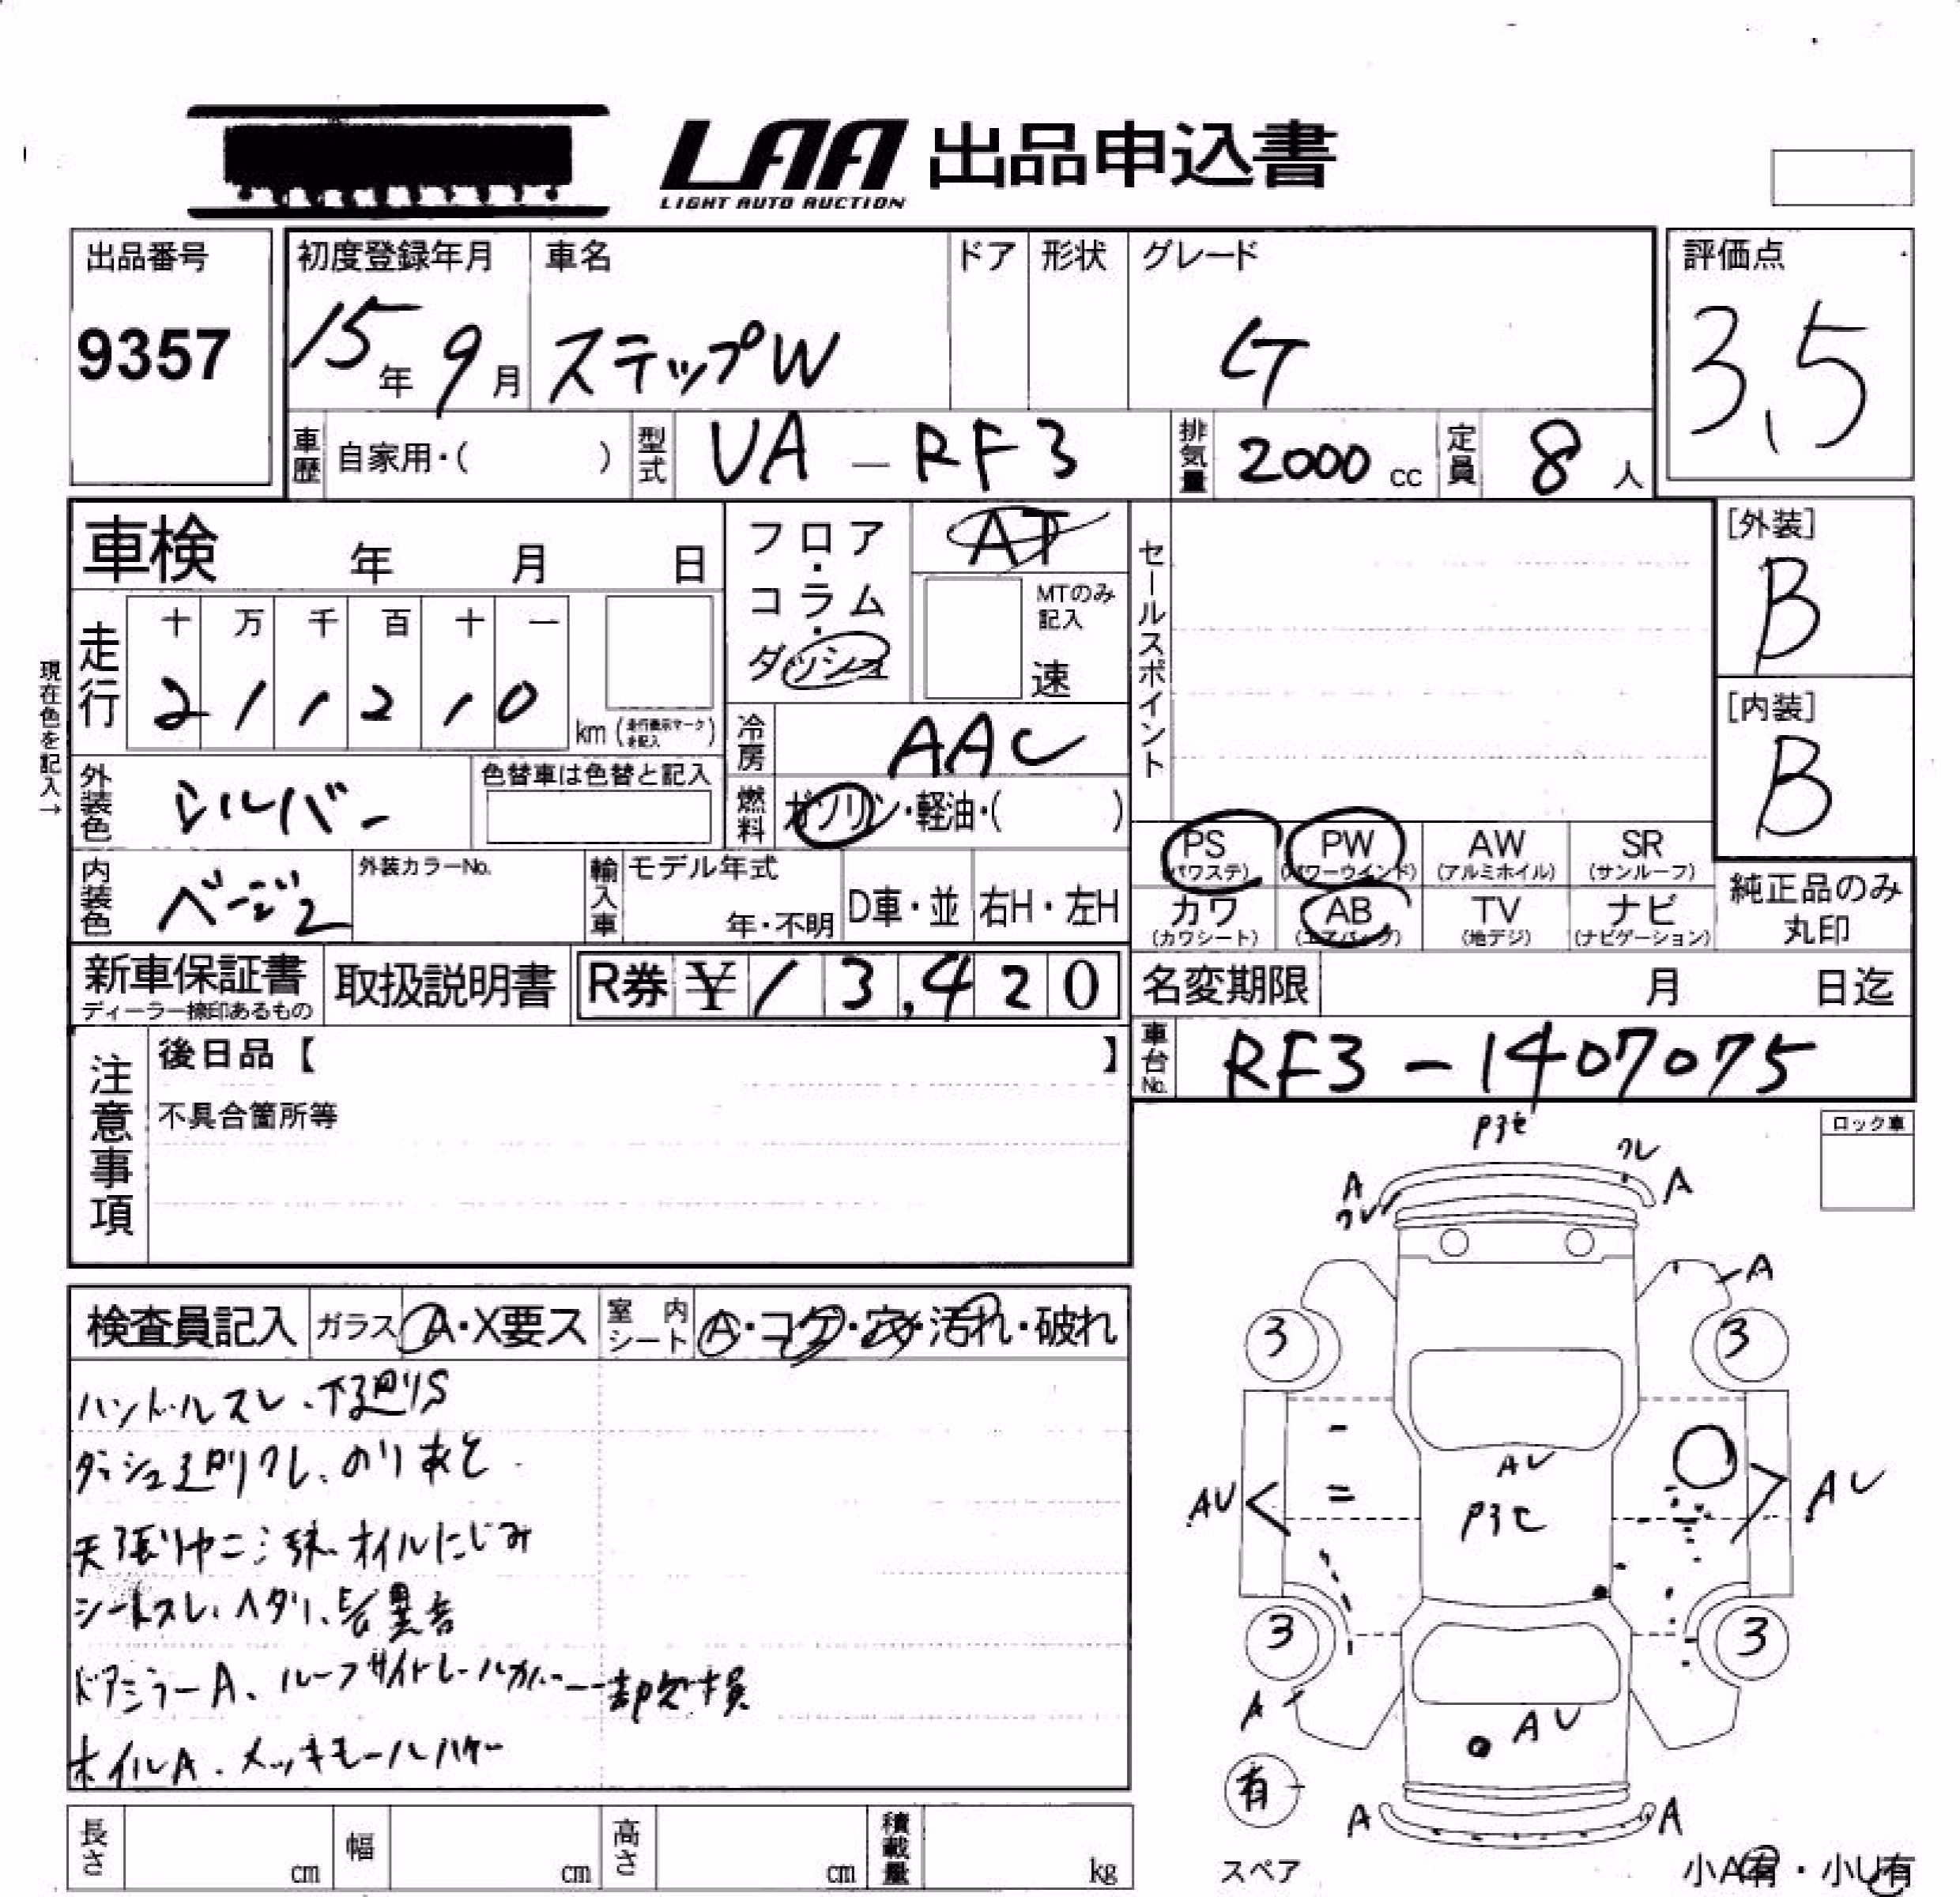 LAA 出品申込書
LIGHT AUTO AUCTION
出品番号 初度登録年月 車名 ドア 形状 グレード 評価点
9357 15年 9月 ステップW G 3.5
車歴 自家用・( ) 型式 UA-RF3 排気量 2000 cc 定員 8 人
車検 年 月 日
フロア・コラム・ダッシュ AT
MTのみ記入 速
セールスポイント
[外装]
B
[内装]
B
走行 十 万 千 百 十 一
2 1 1 2 1 0 km (走行表示マークを記入)
現在色を記入→
冷房 AAC
外装色 シルバー 色替車は色替と記入
燃料 ガソリン・軽油・( )
PS (パワステ) PW (パワーウインド) AW (アルミホイル) SR (サンルーフ)
カワ (カワシート) AB (エアバッグ) TV (地デジ) ナビ (ナビゲーション)
純正品のみ
丸印
内装色 ベージュ 外装カラーNo. 輸入車 モデル年式 年・不明 D車・並 右H・左H
新車保証書 取扱説明書 R券 ¥13,420
ディーラー捺印あるもの
名変期限 月 日迄
車台No. RF3-1407075
注意事項 後日品【 】
不具合箇所等
ロック車
検査員記入 ガラス A・X要ス 室内シート A・コゲ・穴・汚れ・破れ
ハンドルスレ、下廻りS
ダッシュ廻りワレ、のりあと
天張りヤニ汚れ、オイルにじみ
シートスレ、ヘタリ、異音
ドアミラーA、ルーフサイドレールカバー一部欠損
ホイルA、メッキモールハゲ
A ワレ ワレ A
A
3 3
AU AU AU
3 3
A AU
有
A A
スペア
小A有・小U有
長さ cm 幅 cm 高さ cm 積載量 kg